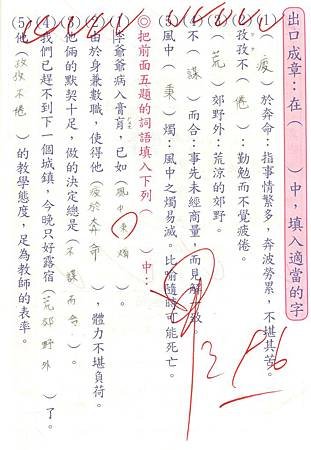 出口成章:在( )中,填入適當的字
(1)(疲)於奔命:指事情繁多,奔波勞累,不堪其苦。
(2)孜孜不(倦):勤勉而不覺疲倦。
(3)(荒)郊野外:荒涼的郊野。
(4)不(謀)而合:事先未經商量,而見解一致。
(5)風中(秉)燭:風中之燭易滅。比喻隨時可能死亡。
◎把前面五題的詞語填入下列( )中:
(1)爺爺病入膏肓,已如(風中秉燭)。
(2)由於身兼數職,使得他(疲於奔命),體力不堪負荷。
(3)他倆的默契十足,做的決定總是(不謀而合)。
(4)我們已趕不到下一個城鎮,今晚只好露宿(荒郊野外)了。
(5)他(孜孜不倦)的教學態度,足為教師的表率。
96